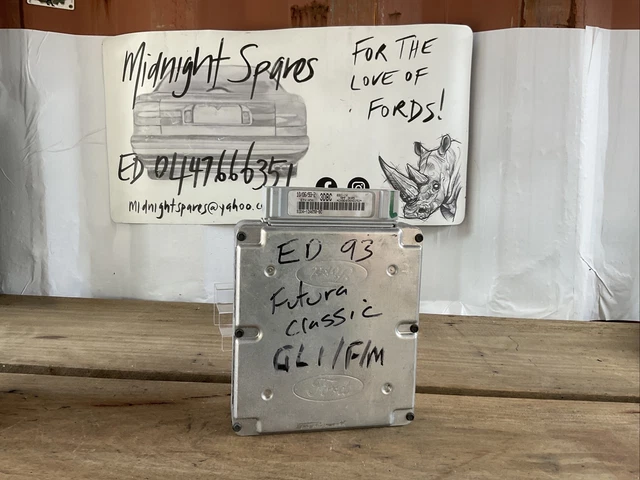 Midnight Spares
FOR THE
LOVE OF
FORDS!
ED 0447666351
midnightspares@yahoo.c
3DBC
ED 93
Futura
classic
GLI/F/M
Ford